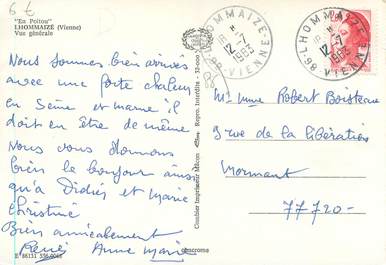 6 €
"En Poitou"
LHOMMAIZÉ (Vienne)
Vue générale
LHOMMAIZE
12-7
1983
86-VIENNE
LHOMMAIZE
12-7
1983
86-VIENNE
Nous sommes bien arrivés
avec une forte chaleur
en Seine et marne il
doit en être de même
Nous vous donnons
bien le bonjour aussi
qu'a Didier et Marie
Christine
Bien amicalement
René Anne Marie
Mr Mme Robert Boisteau
rue de la libération
Mormant
77720-
Combier Imprimeur Mâcon
Repro. Interdite
E 86131